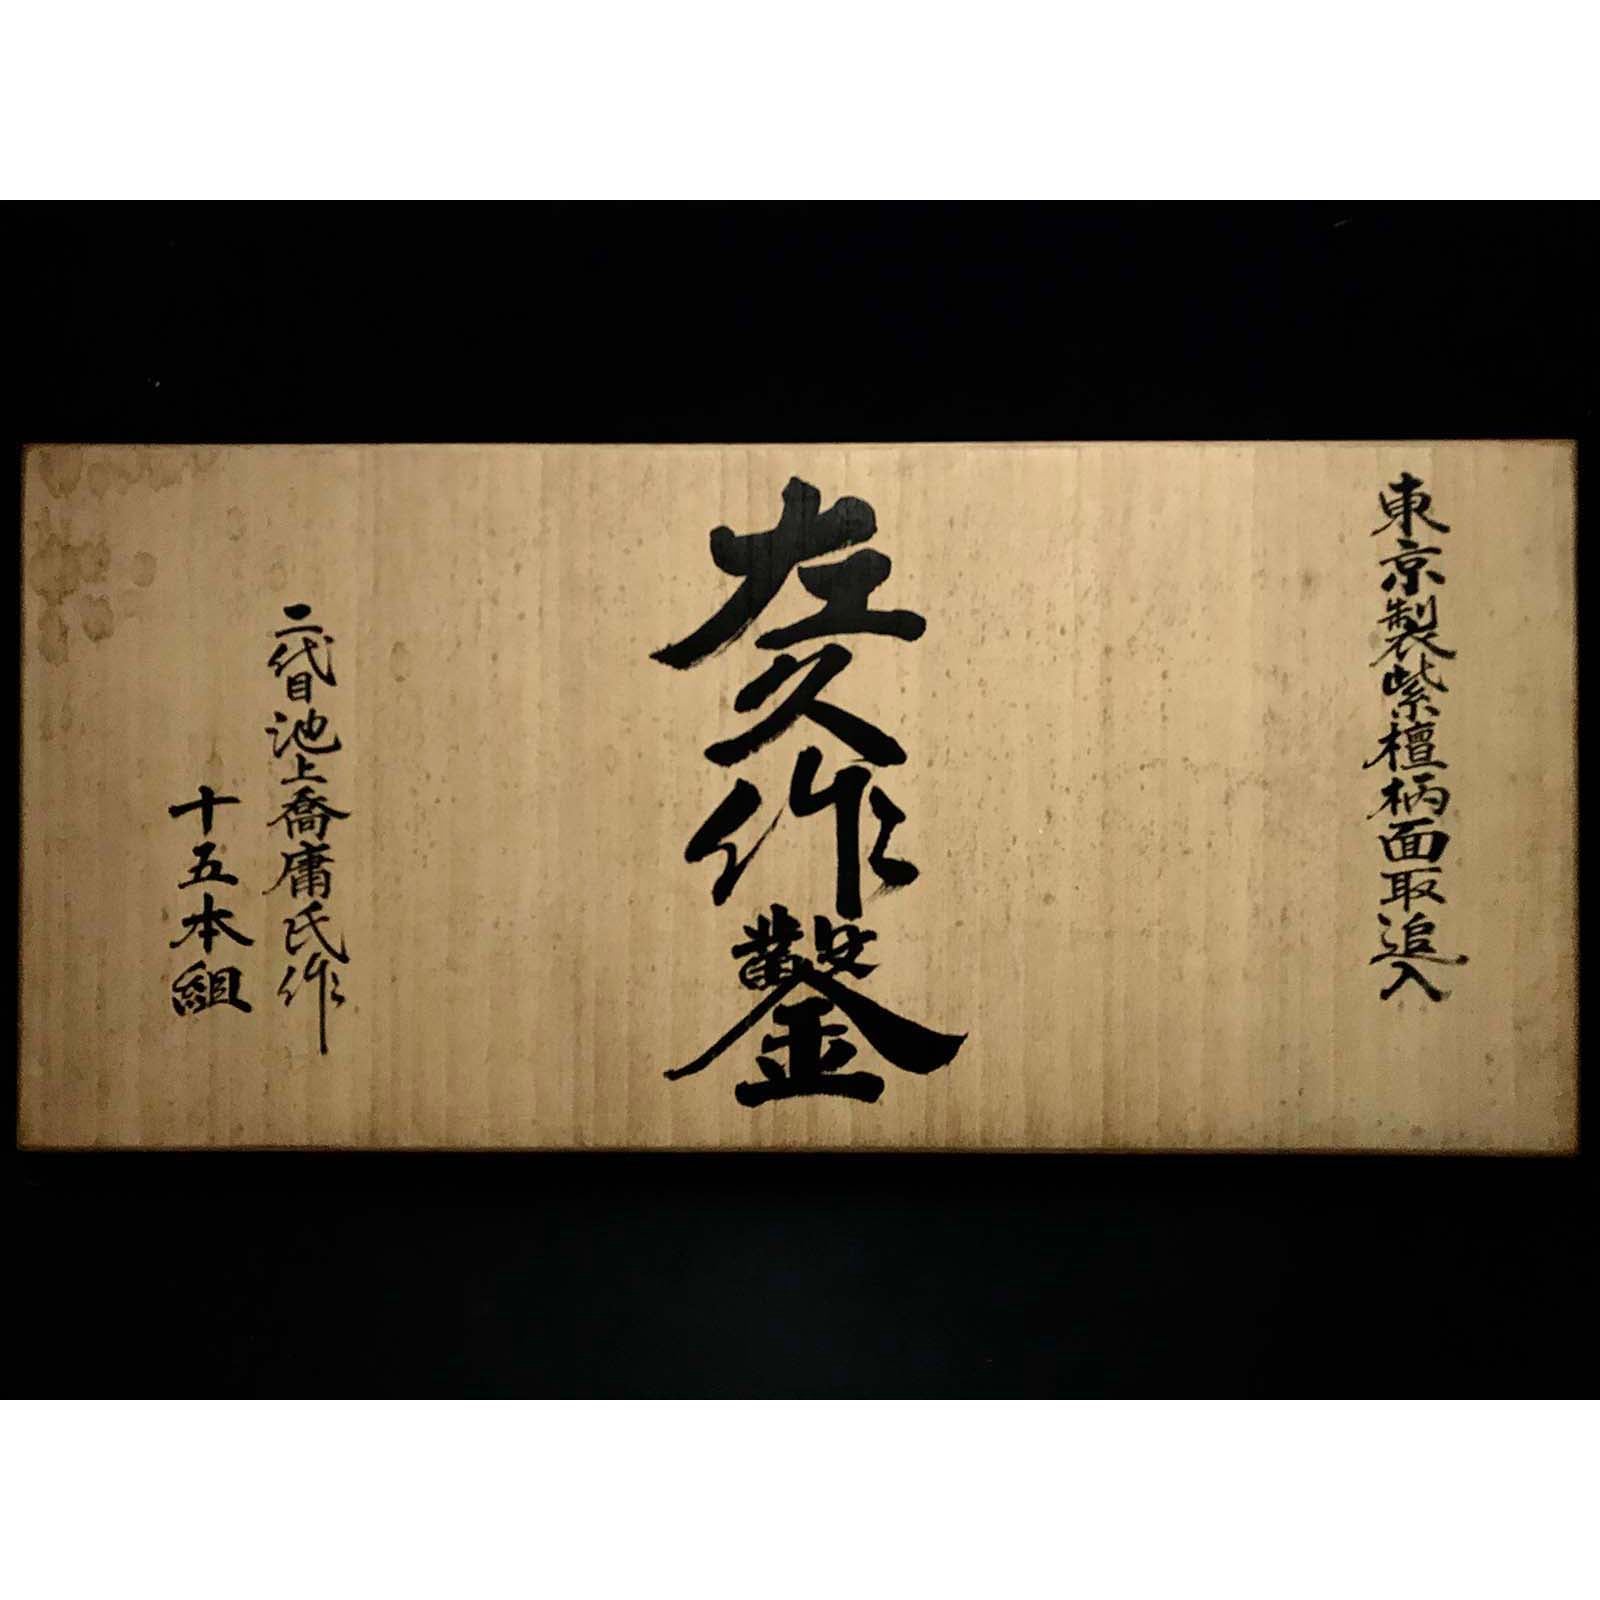 東京製紫檀柄面取追入
左久作鑿
二代目池上喬庸氏作
十五本組